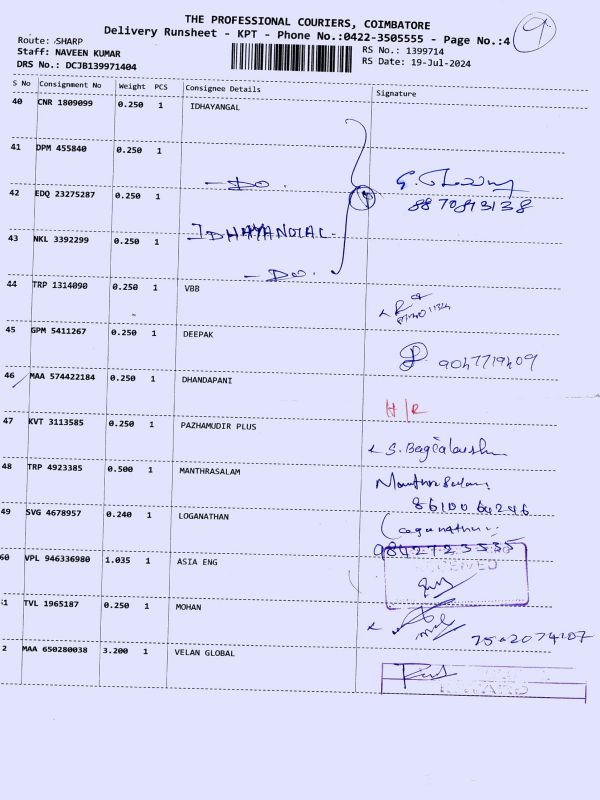 THE PROFESSIONAL COURIERS, COIMBATORE
Delivery Runsheet - KPT - Phone No.:0422-3505555 - Page No.:4
9
Route: SHARP
Staff: NAVEEN KUMAR
DRS No.: DCJB139971404
RS No.: 1399714
RS Date: 19-Jul-2024
S No Consignment No Weight PCS Consignee Details Signature
40 CNR 1809099 0.250 1 IDHAYANGAL
41 DPM 455840 0.250 1
- Do.
42 EDQ 23275287 0.250 1
8870843138
IDHAYANGAL.
43 NKL 3392299 0.250 1
- Do.
44 TRP 1314090 0.250 1 VBB
45 GPM 5411267 0.250 1 DEEPAK
46 MAA 574422184 0.250 1 DHANDAPANI
H/R
47 KVT 3113585 0.250 1 PAZHAMUDIR PLUS
48 TRP 4923385 0.500 1 MANTHRASALAM
Manthrasalam
49 SVG 4678957 0.240 1 LOGANATHAN
Loganathan
9842723535
60 VPL 946336980 1.035 1 ASIA ENG
RECEIVED
51 TVL 1965187 0.250 1 MOHAN
2 MAA 650280038 3.200 1 VELAN GLOBAL